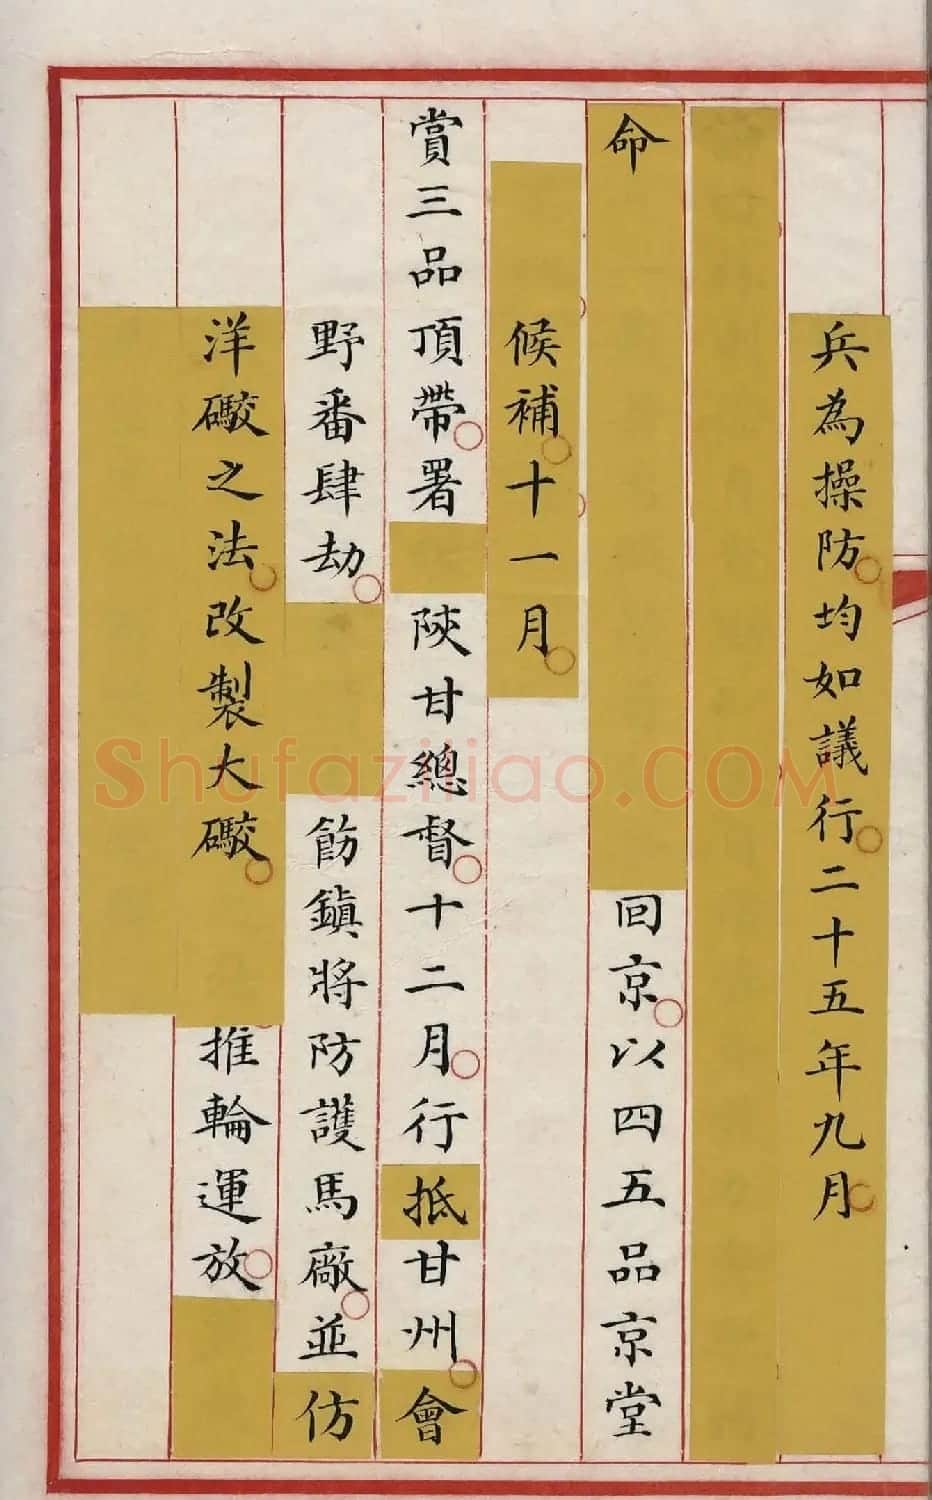 兵為操防均如議行二十五年九月
命回京以四五品京堂
候補十一月
賞三品頂帶署陝甘總督十二月行抵甘州會
野番肆劫飭鎮將防護馬廠並仿
洋礮之法改製大礮推輪運放
Shufaziliao.COM